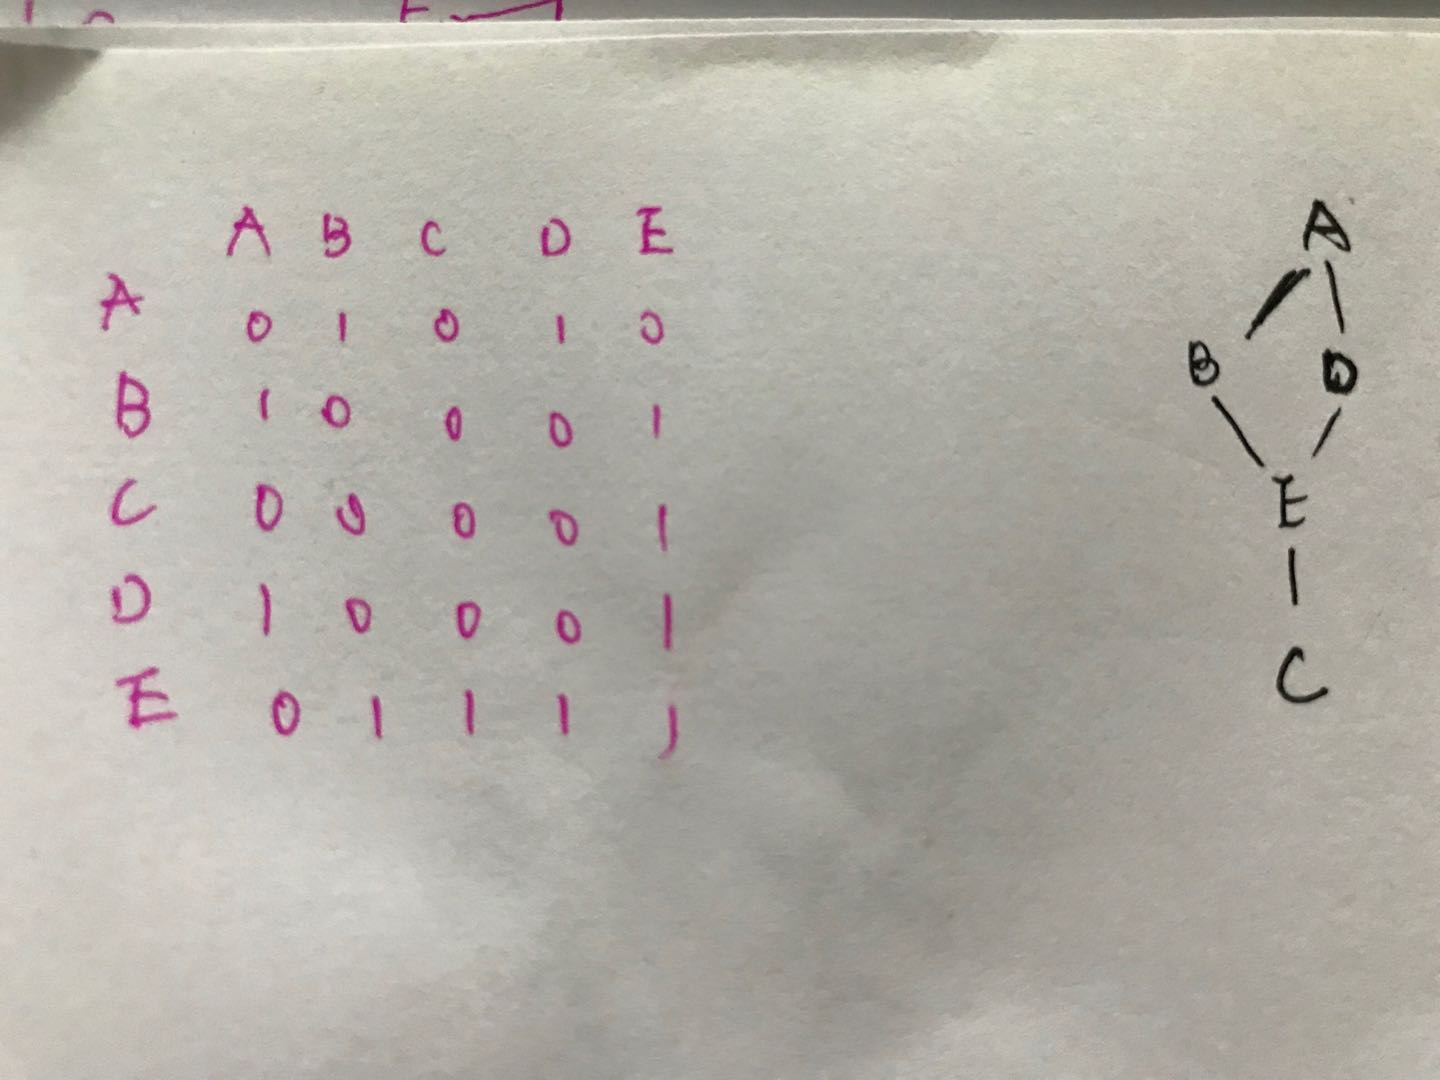 A B C D E
A 0 1 0 1 0
B 1 0 0 0 1
C 0 0 0 0 1
D 1 0 0 0 1
E 0 1 1 1 1
A
B D
E
C